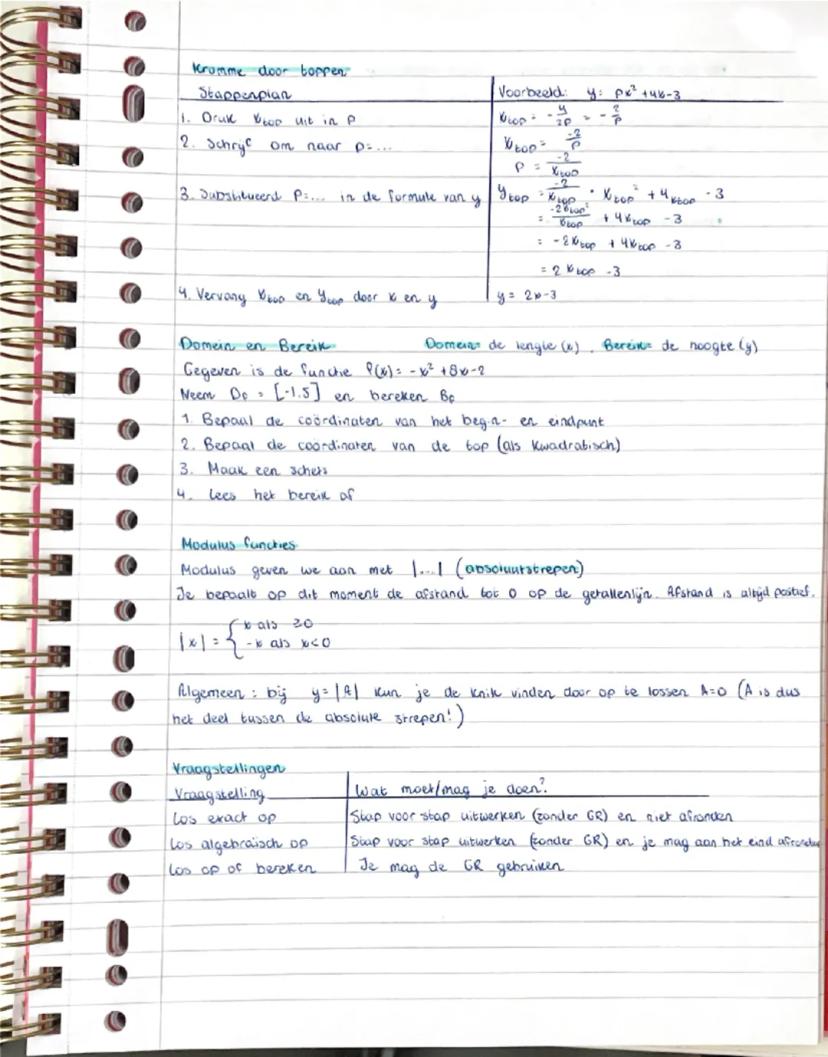 Kromme door toppen
Stappenplan
Voorbeeld: y = px² + 4x - 3
1. Druk x_top uit in p
x_top = -4/2p = -2/p
2. Schrijf om naar p = ...
x_top = -2/p
p = -2/x_top
3. Substitueerd p = ... in de formule van y
y_top = -2/x_top · x_top² + 4x_top - 3
= -2x_top²/x_top + 4x_top - 3
= -2x_top + 4x_top - 3
= 2x_top - 3
4. Vervang x_top en y_top door x en y
y = 2x - 3
Domein en Bereik Domein = de lengte (x). Bereik = de hoogte (y)
Gegeven is de functie f(x) = -x² + 8x - 2
Neem D_f = [-1.5] en bereken B_f
1. Bepaal de coördinaten van het begin- en eindpunt
2. Bepaal de coördinaten van de top (als kwadratisch)
3. Maak een schets
4. Lees het bereik af
Modulus functies
Modulus geven we aan met |...| (absoluutstrepen)
Je bepaalt op dit moment de afstand tot 0 op de getallenlijn. Afstand is altijd positief.
|x| = { x als ≥0
-x als x<0
Algemeen: bij y = |A| kun je de knik vinden door op te lossen A=0 (A is dus
het deel tussen de absolute strepen!)
Vraagstellingen
Vraagstelling
Wat moet/mag je doen?
Los exact op
Stap voor stap uitwerken (zonder GR) en niet afronden
Los algebraïsch op
Stap voor stap uitwerken (zonder GR) en je mag aan het eind afronden
Los op of bereken
Je mag de GR gebruiken